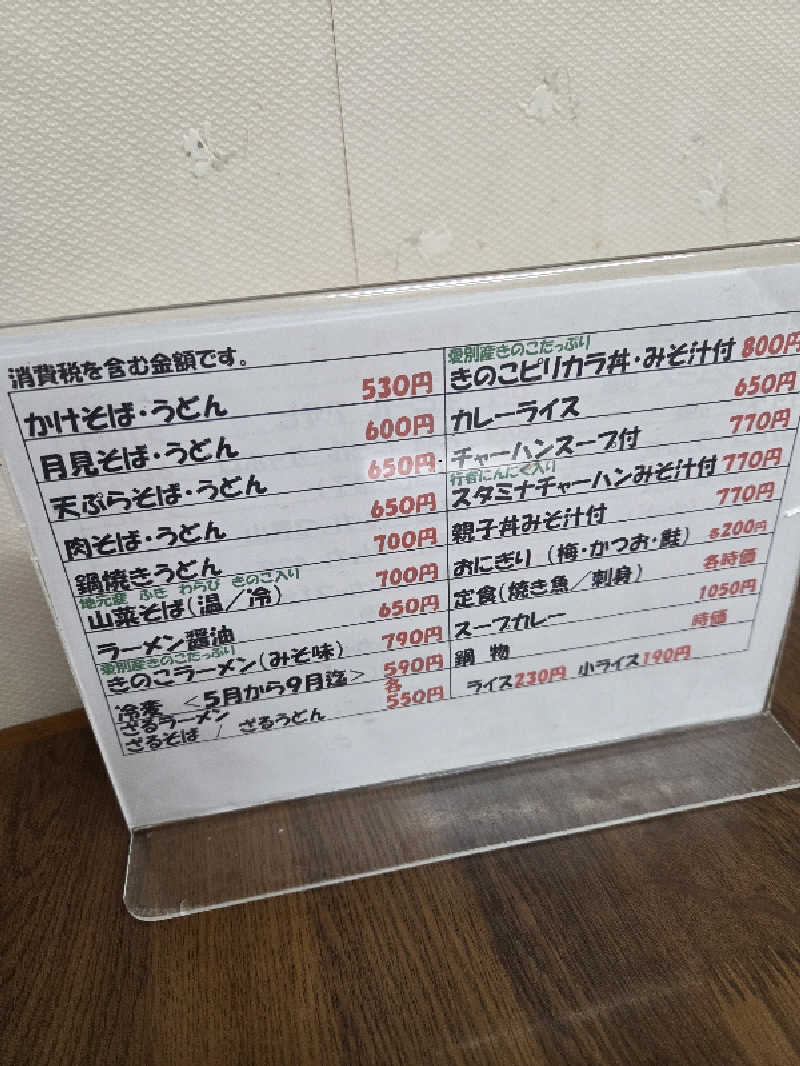 消費税を含む金額です。
かけそば・うどん 530円
月見そば・うどん 600円
天ぷらそば・うどん 650円
肉そば・うどん 650円
鍋焼きうどん 700円
地元産 ふき わらび きのこ入り
山菜そば(温/冷) 700円
ラーメン醤油 650円
愛別産きのこだっぷり
きのこラーメン(みそ味) 790円
冷麦 <5月から9月迄> 590円
ざるラーメン 各
ざるそば / ざるうどん 550円
愛別産きのこだっぷり
きのこピリカラ丼・みそ汁付 800円
カレーライス 650円
チャーハンスープ付 770円
行者にんにく入り
スタミナチャーハンみそ汁付 770円
親子丼みそ汁付 770円
おにぎり (梅・かつお・鮭) 200円
定食(焼き魚/刺身) 各時価
スープカレー 1050円
鍋 物 時価
ライス230円 小ライス190円